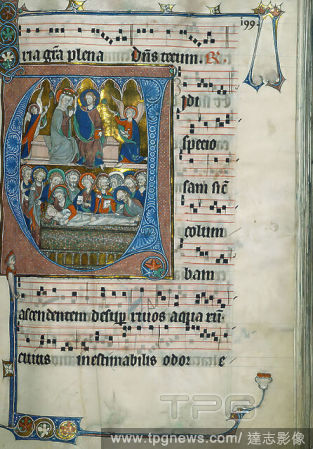 199
ria gr̄a plena dn̄s tecum. R̄
idi
specio
sam sic̄
colum
bam
ascendentem desup̄ rivos aqua rū
cuius inestimabilis odor e
TPG
www.tpgnews.com/ 達志影像